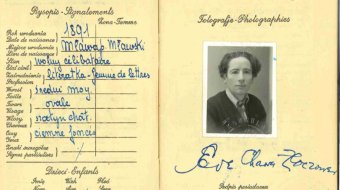 Rysopis-Signalements
Żona-Femme
Rok urodzenia
Date de naissance
1891
Miejsce urodzenia
Lieu de naissance
Mława, Mławski
Stan
Etat civil
wolny célibataire
Zatrudnienie
Profession
literatka - femme de lettres
Wzrost
Taille
średni moy
Twarz
Visage
ovale
Włosy
Cheveux
szatyn chât.
Oczy
Yeux
ciemne foncés
Znaki szczególne
Signes particuliers
Dzieci-Enfants
Imię
Nom
Wiek
Age
Płeć
Sexe
Fotografje-Photographies
Podpis posiadacza